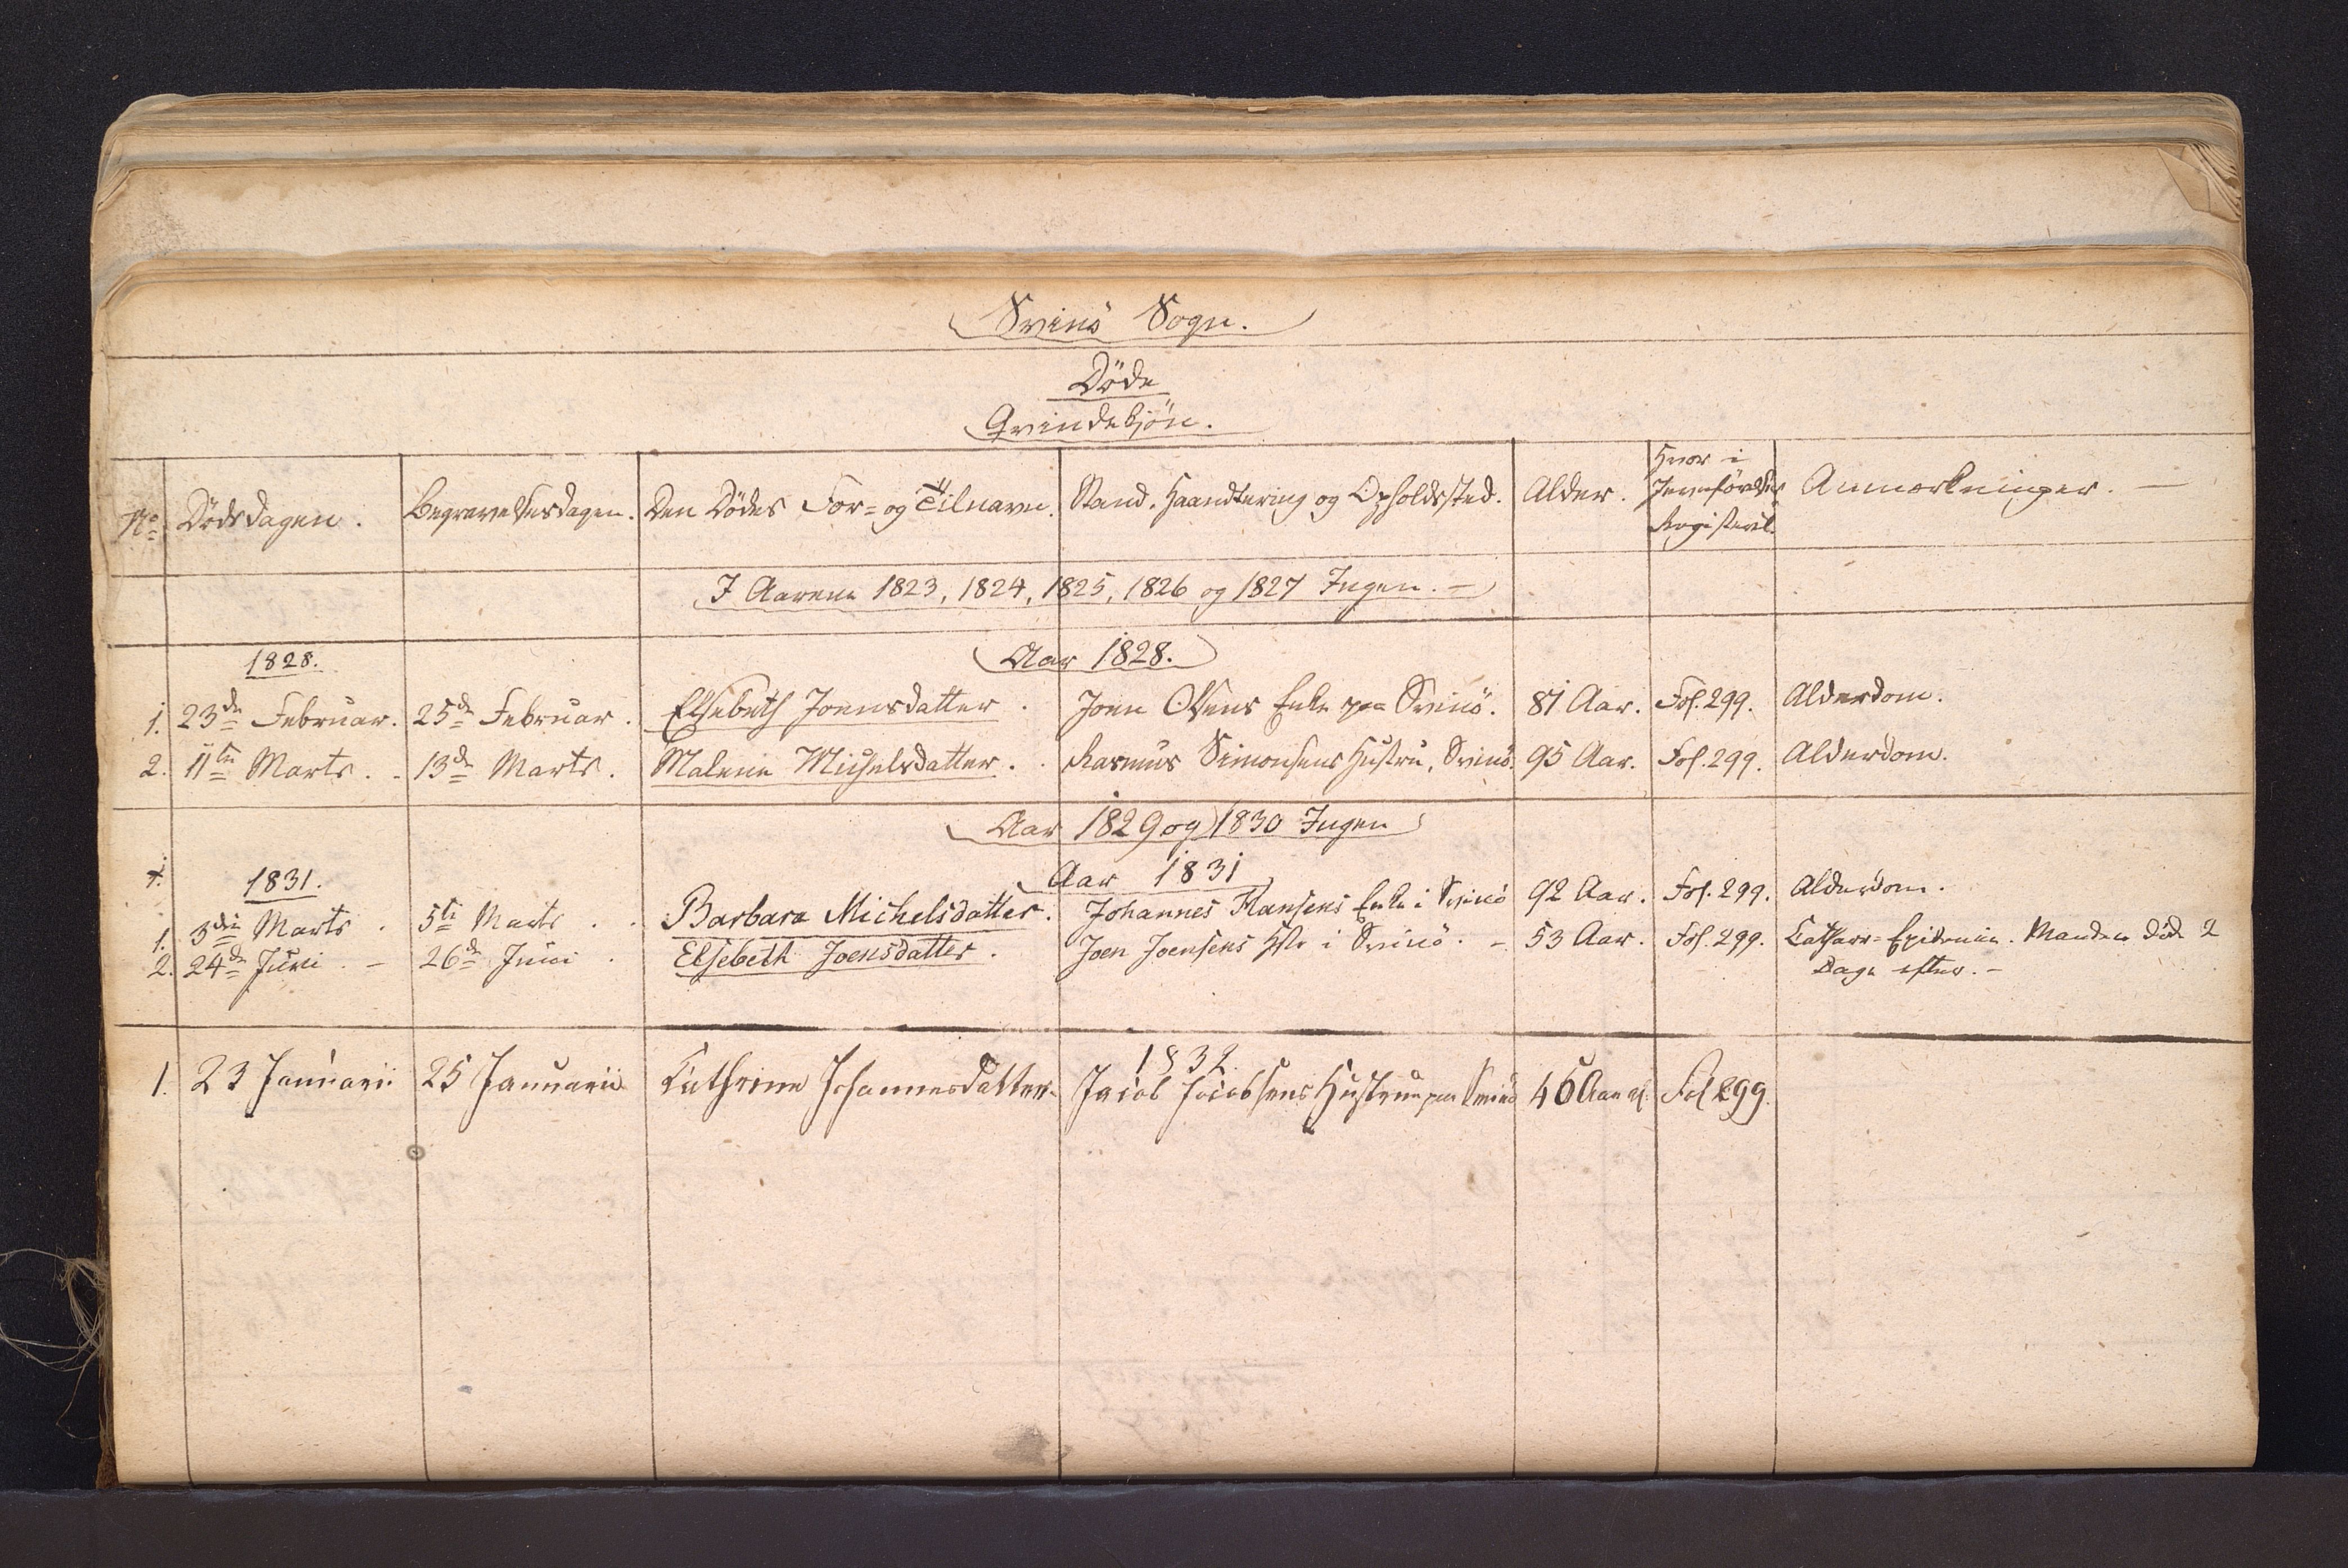 Svinö Sogn.
Döde
Qvindekjön.
No Dödsdagen. Begravelsesdagen. Den Dödes For- og Tilnavn. Stand, Haandtering og Opholdsted. Alder. Hvor i Jevnförelses Registeret. Anmærkninger. —
I Aarene 1823, 1824, 1825, 1826 og 1827 Ingen. —
1828. Aar 1828.
1. 23de Februar. 25de Februar. Elsebeth Joensdatter. Joen Olsens Enke paa Svinö. 81 Aar. Fol. 299. Alderdom.
2. 11te Marts. - 13de Marts. Malene Michelsdatter. Rasmus Simonsens Hustru, Svinö. 95 Aar. Fol. 299. Alderdom.
Aar 1829 og 1830 Ingen
1831. Aar 1831
1. 3die Marts. 5te Marts. Barbara Michelsdatter. Johannes Hansens Enke i Svinö 92 Aar. Fol. 299. Alderdom.
2. 24de Juni. — 26de Juni. Elsebeth Joensdatter. Joen Joensens Hstr i Svinö. - 53 Aar. Fol. 299. Catharr-Epidemie. Manden död 2
Dage efter. —
1832.
1. 23 Januarii 25 Januarii Cathrine Johannesdatter. Jacob Jacobsens Hustrue paa Svinö 46 Aar gl. Fol 299.